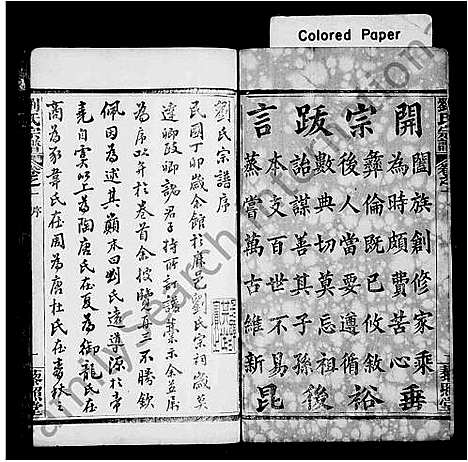 Colored Paper
劉氏宗譜 卷之一
藜照堂
開宗跋言
闔族創修家乘
為時頗費苦心
彝倫既已攸敘
後人當要遵循
數典切莫忘祖
詒謀善其子孫
本支百世不易
蒸嘗萬古維新
垂裕後昆
劉氏宗譜序
民國丁卯歲余館於麻邑劉氏宗祠歲莫
遠卿段卿諸君子持所訂譜稾示余並屬
為序以弁於卷首余披覽再三不勝欽
佩因為述其顛末曰劉氏遠導源於帝
堯自虞以上為陶唐氏在夏為御龍氏在
商為豕韋氏在周為唐杜氏在春秋之
劉氏宗譜 卷之一 序
一 藜照堂